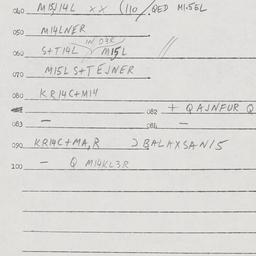 040 M15/14L xx (110 / QED M1.5EL
050 M14LNER
IN D3R
060 S+T14L M15L
070 M15L S+TEJNER
080 KR14C+M14
082 + QAJNFUR Q
083 — 084 —
090 KR14C+MA,R JBALAXSAN/5
100 — Q M14KL3R